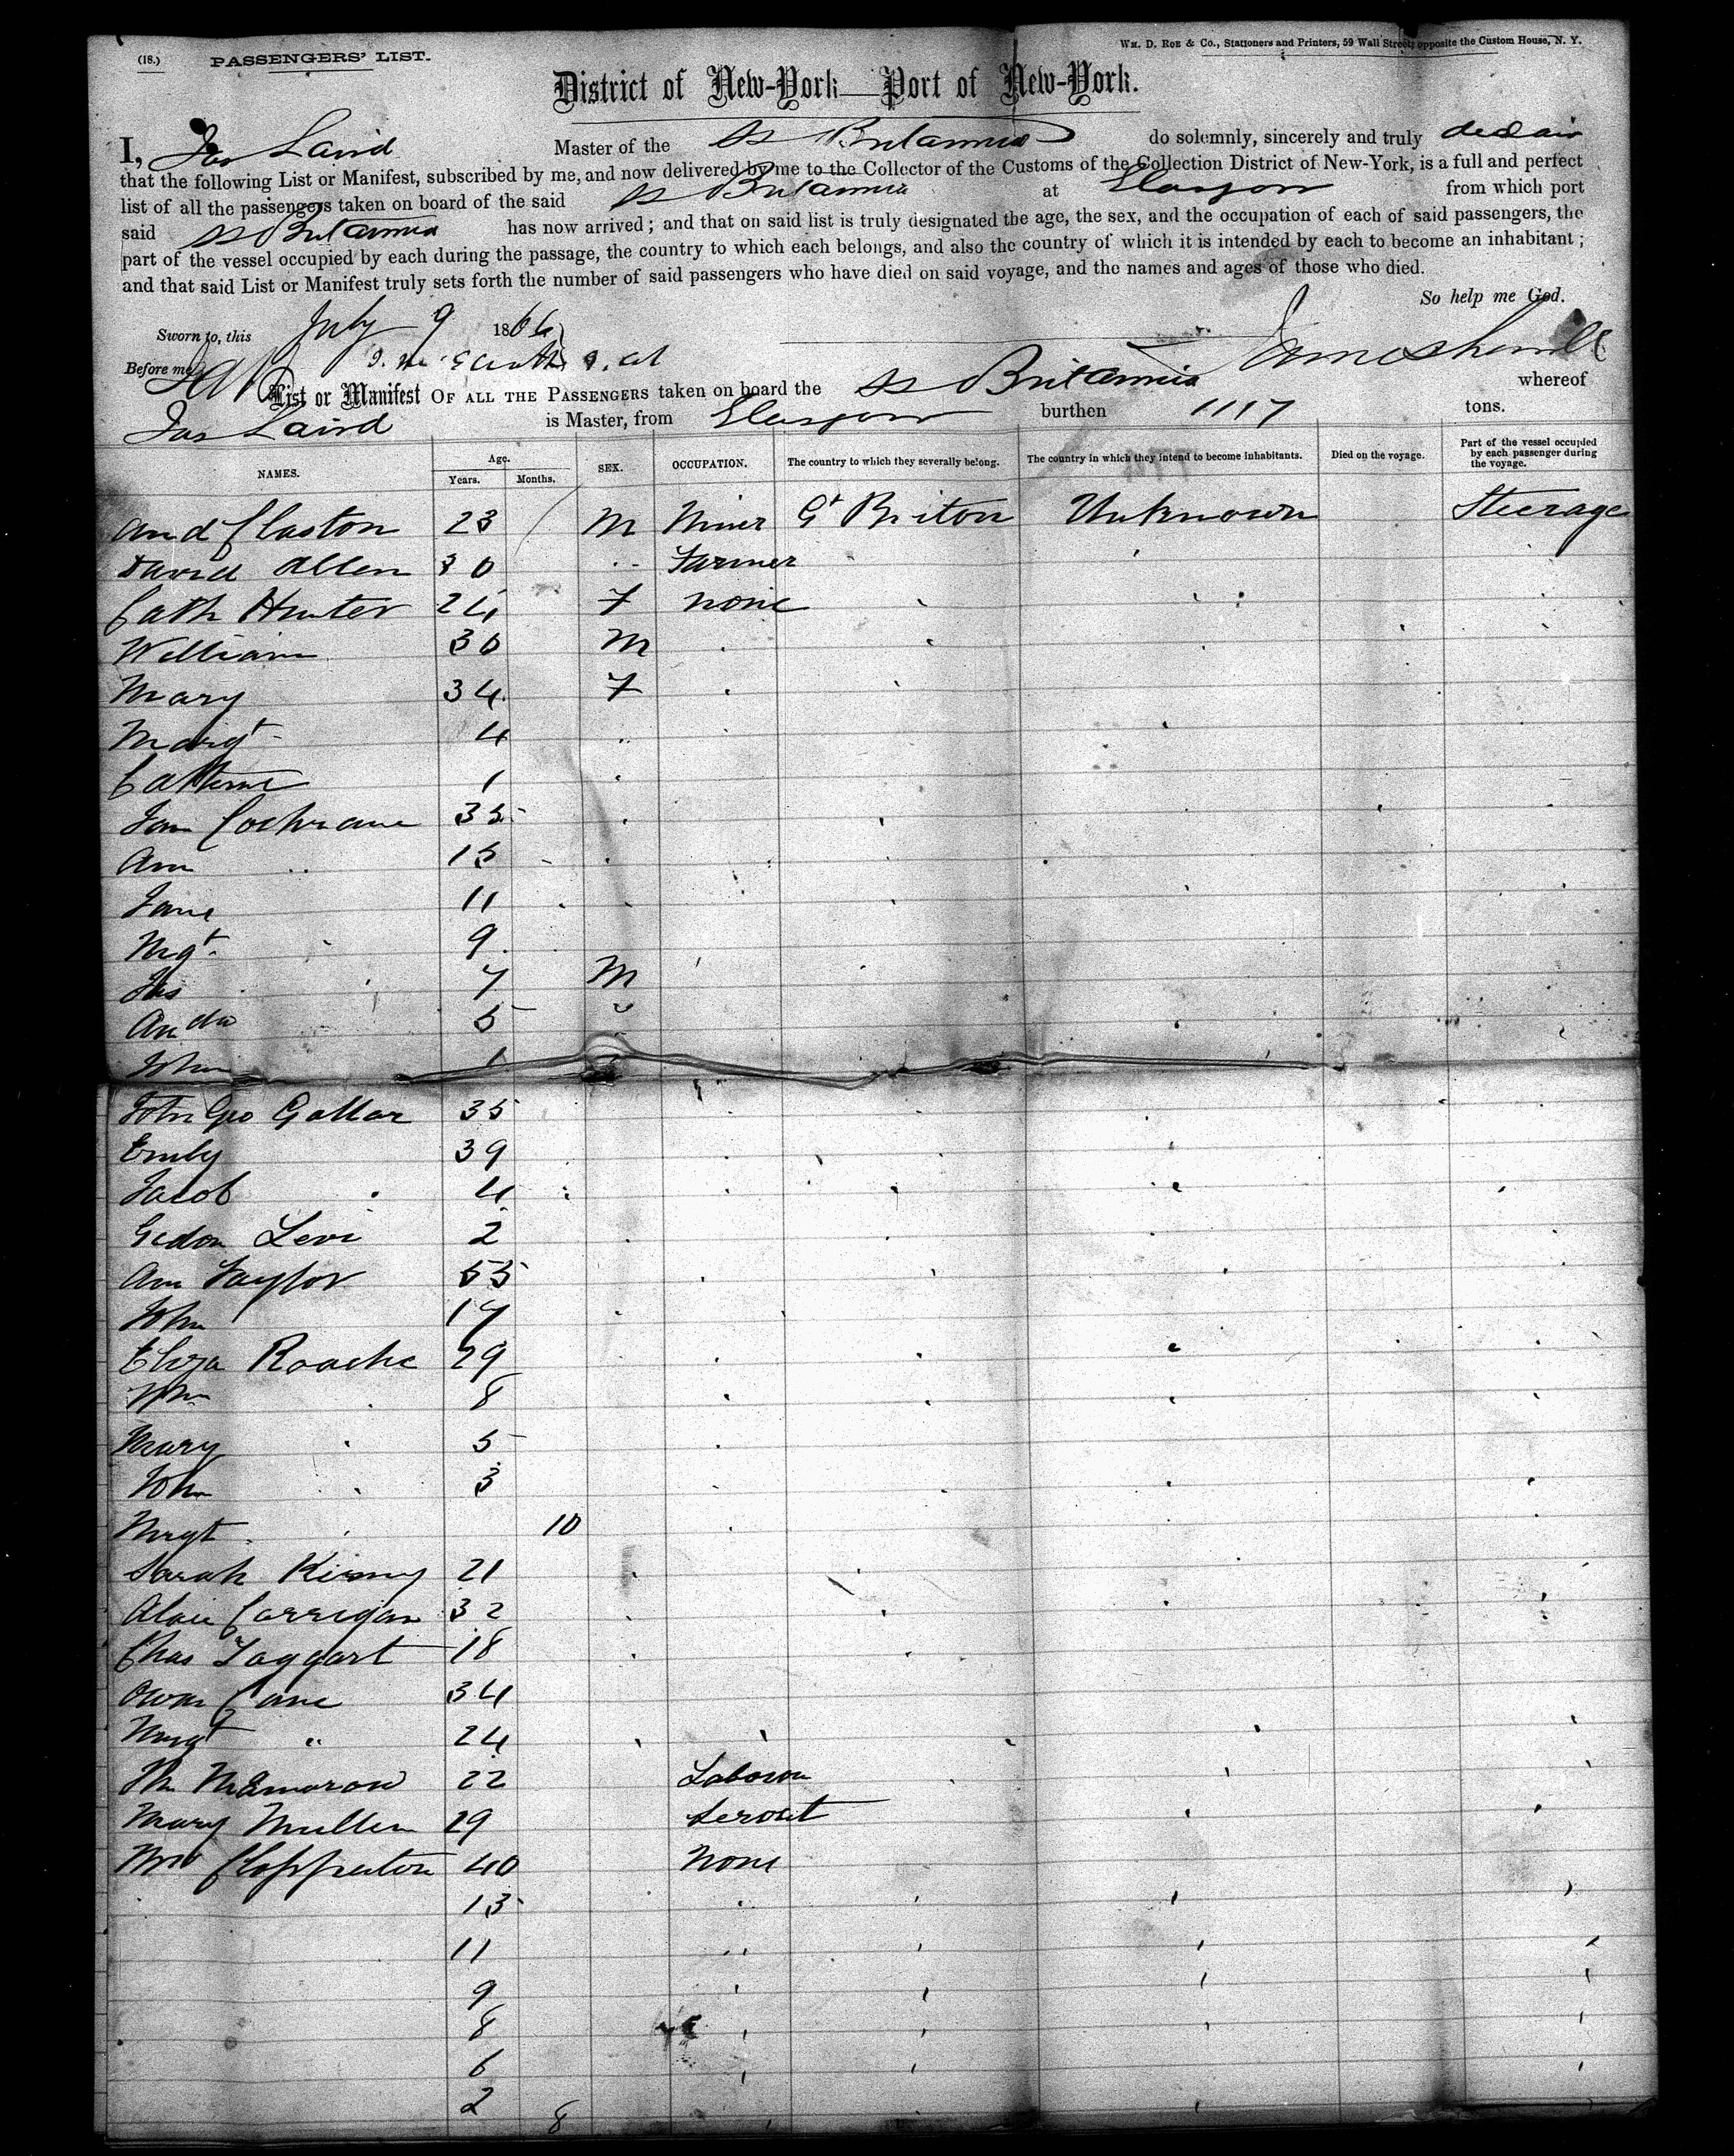 (18.) PASSENGERS' LIST. WM. D. ROE & CO., Stationers and Printers, 59 Wall Street, opposite the Custom House, N. Y.
District of New-York—Port of New-York.
I, Jas Laird Master of the SS Britannia do solemnly, sincerely and truly
that the following List or Manifest, subscribed by me, and now delivered by me to the Collector of the Customs of the Collection District of New-York, is a full and perfect
list of all the passengers taken on board of the said SS Britannia at Glasgow from which port
said SS Britannia has now arrived; and that on said list is truly designated the age, the sex, and the occupation of each of said passengers, the
part of the vessel occupied by each during the passage, the country to which each belongs, and also the country of which it is intended by each to become an inhabitant;
and that said List or Manifest truly sets forth the number of said passengers who have died on said voyage, and the names and ages of those who died.
So help me God.
Sworn to, this July 9 1866
Before me
List or Manifest OF ALL THE PASSENGERS taken on board the SS Britannia whereof
Jas Laird is Master, from Glasgow burthen 1117 tons.
NAMES. Age. Years. Months. SEX. OCCUPATION. The country to which they severally belong. The country in which they intend to become inhabitants. Died on the voyage. Part of the vessel occupied by each passenger during the voyage.
And Claston 23 M Miner Gt Briton Unknown Steerage
David Allen 30 Farmer
Cath Hunter 24 F None
William 30 M
Mary 34 F
Margt 4
Catherine 1
Jam Cochrane 35
Ann 15
Jane 11
Mgt 9
Jas 7 M
Andw 5
John 1
John Geo Gallar 35
Emily 39
Jacob 4
Gedon Levi 2
Ann Taylor 55
John 17
Eliza Roache 29
Wm 8
Mary 5
John 3
Mrgt 10
Sarah 21
Alice Corrigan 32
Chas Taggart 18
Owen Cane 34
Mrgt " 24
22
Mary Mullen 29 Servt
Mrs Clapperton 40 None
13
11
9
8
6
2
8